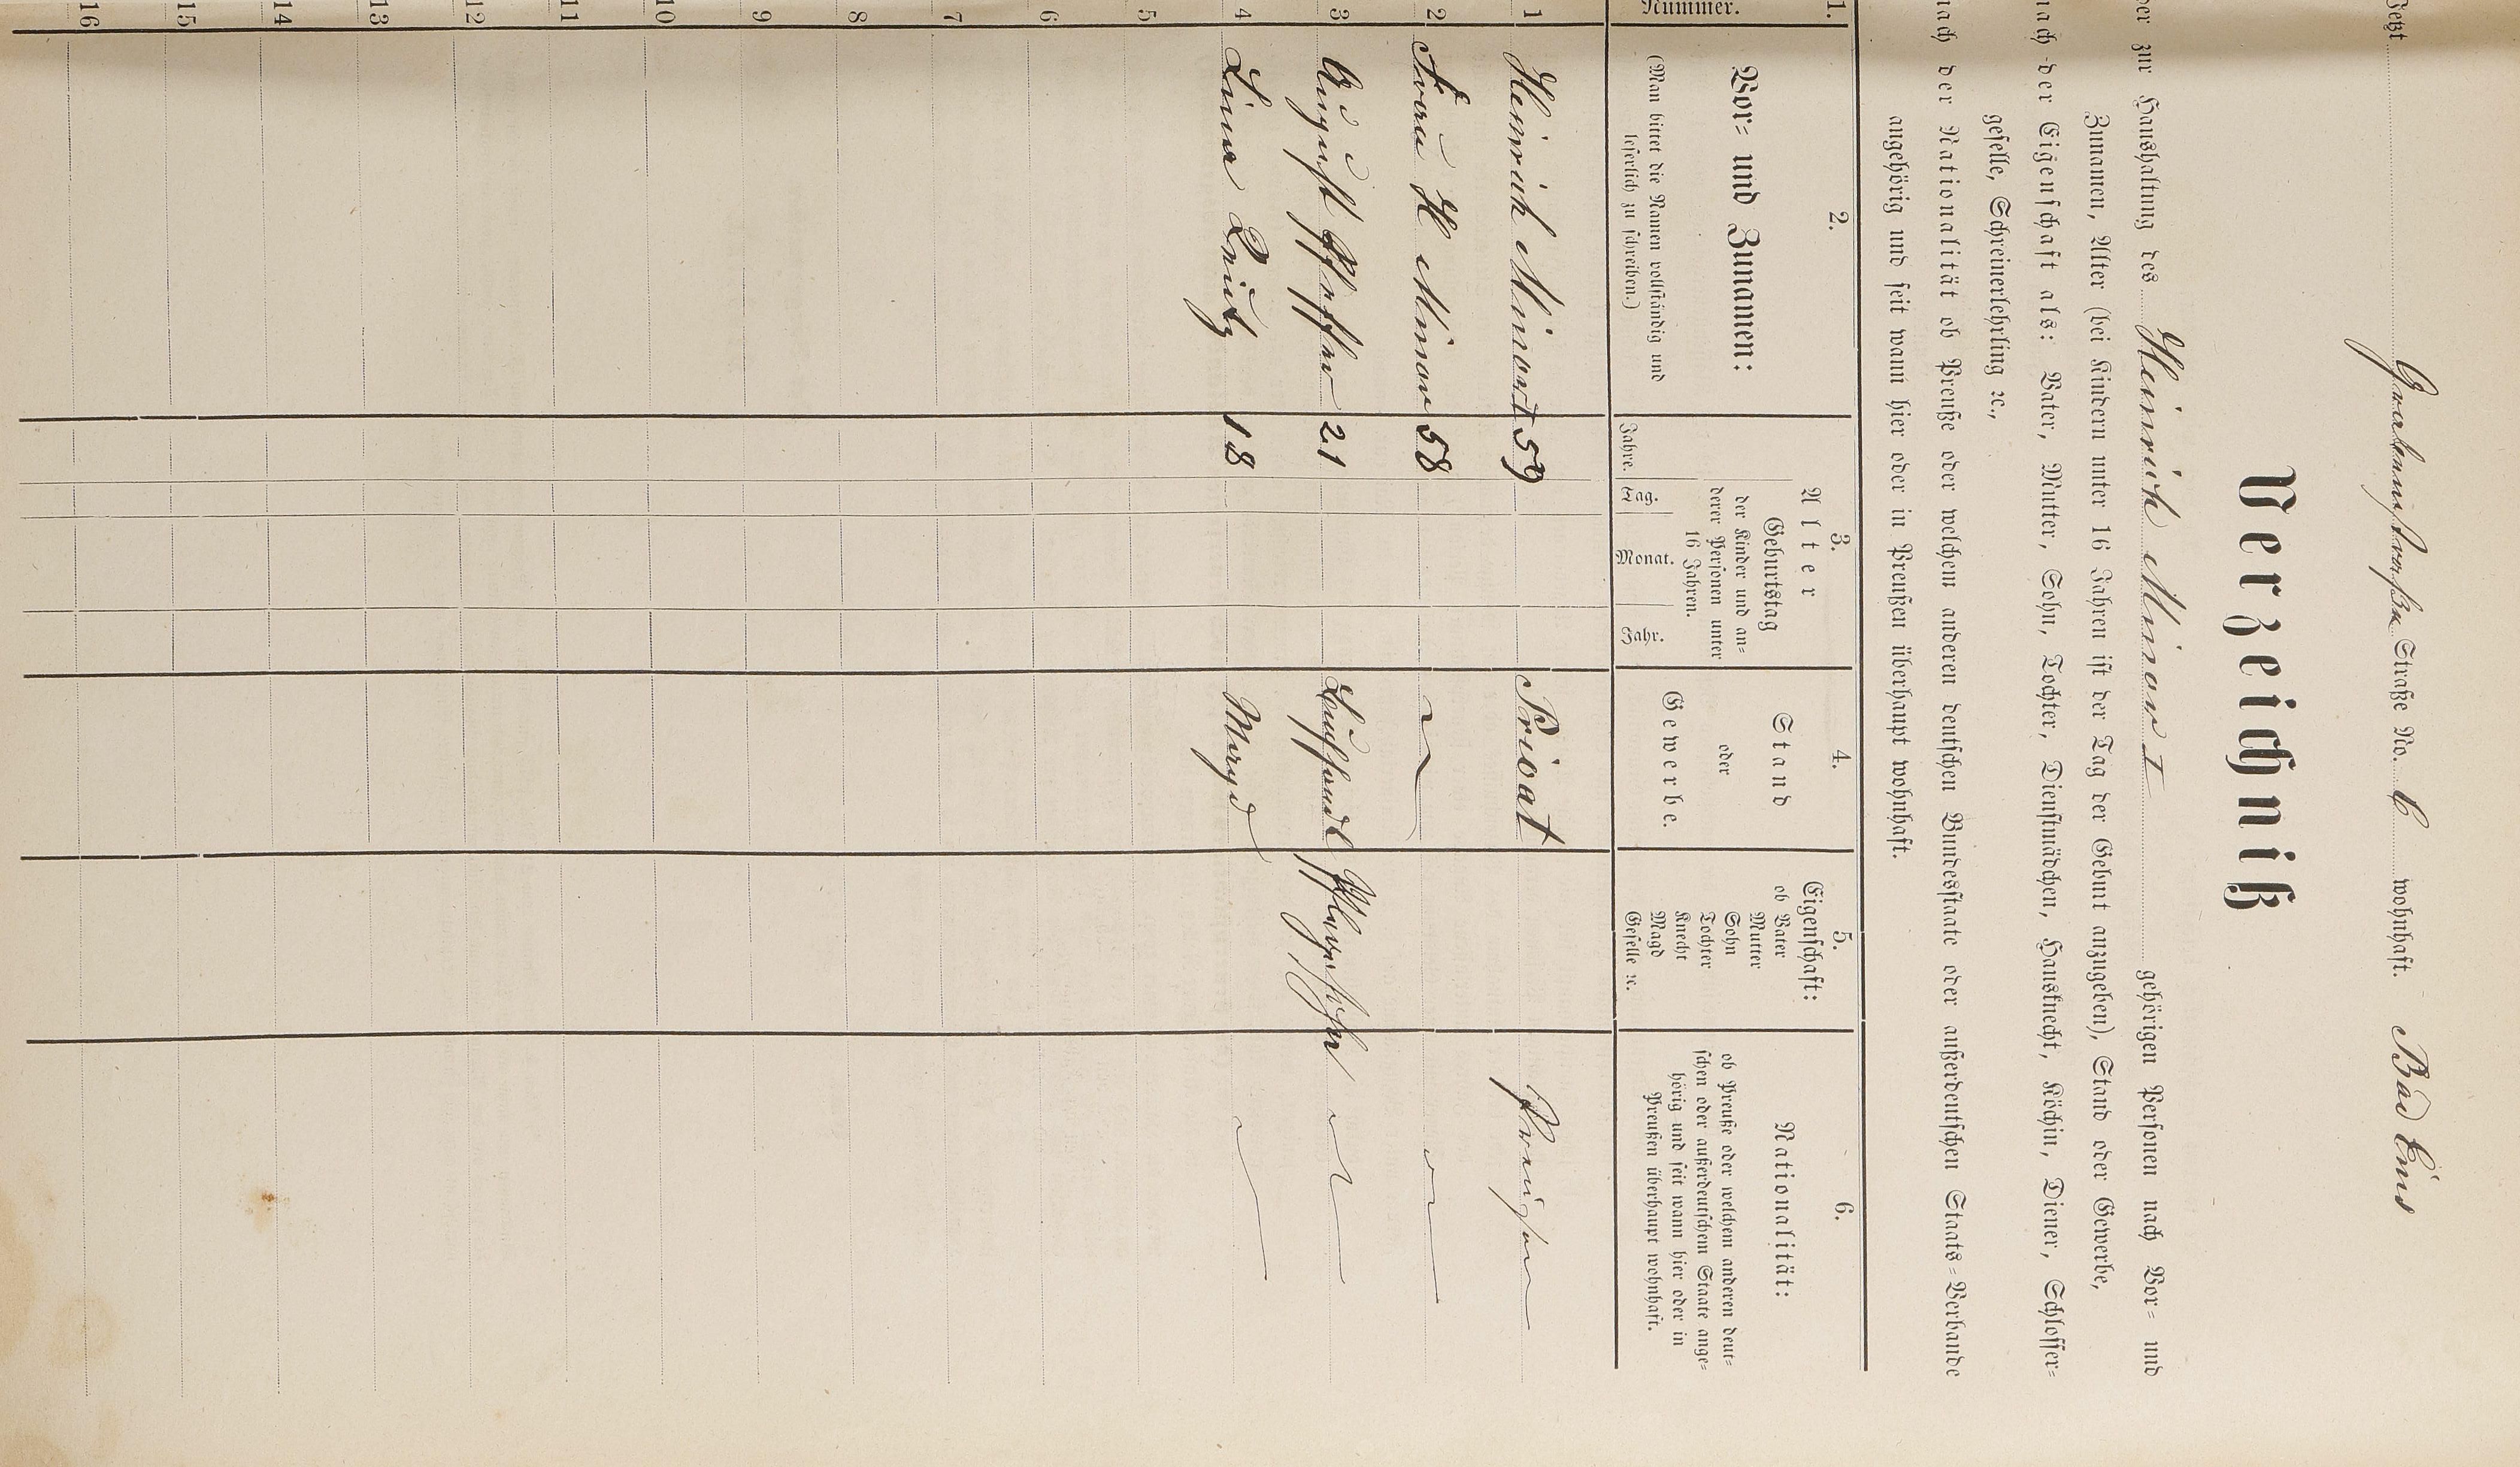 Jetzt Grabenstraße Straße No. 6 wohnhaft. Bad Ems
Verzeichniß
der zur Haushaltung des Heinrich Minor I gehörigen Personen nach Vor= und
Zunamen, Alter (bei Kindern unter 16 Jahren ist der Tag der Geburt anzugeben), Stand oder Gewerbe,
nach der Eigenschaft als: Vater, Mutter, Sohn, Tochter, Dienstmädchen, Hausknecht, Köchin, Diener, Schlosser=
geselle, Schreinerlehrling ꝛc.,
nach der Nationalität ob Preuße oder welchem anderen deutschen Bundesstaate oder außerdeutschen Staats=Verbande
angehörig und seit wann hier oder in Preußen überhaupt wohnhaft.
1.
Nummer.
2.
Vor= und Zunamen:
(Man bittet die Namen vollständig und
leserlich zu schreiben.)
3.
Alter
Geburtstag
der Kinder und an=
derer Personen unter
16 Jahren.
Jahre. Tag. Monat. Jahr.
4.
Stand
oder
Gewerbe.
5.
Eigenschaft:
ob Vater
Mutter
Sohn
Tochter
Knecht
Magd
Geselle ꝛc.
6.
Nationalität:
ob Preuße oder welchem anderen deut=
schen oder außerdeutschem Staate ange=
hörig und seit wann hier oder in
Preußen überhaupt wohnhaft.
1 Heinrich Minor I 59 Privat Preußen
2 Frau H Minor 58 "
3 August 21
4 Lina 18 Magd
5
6
7
8
9
10
11
12
13
14
15
16